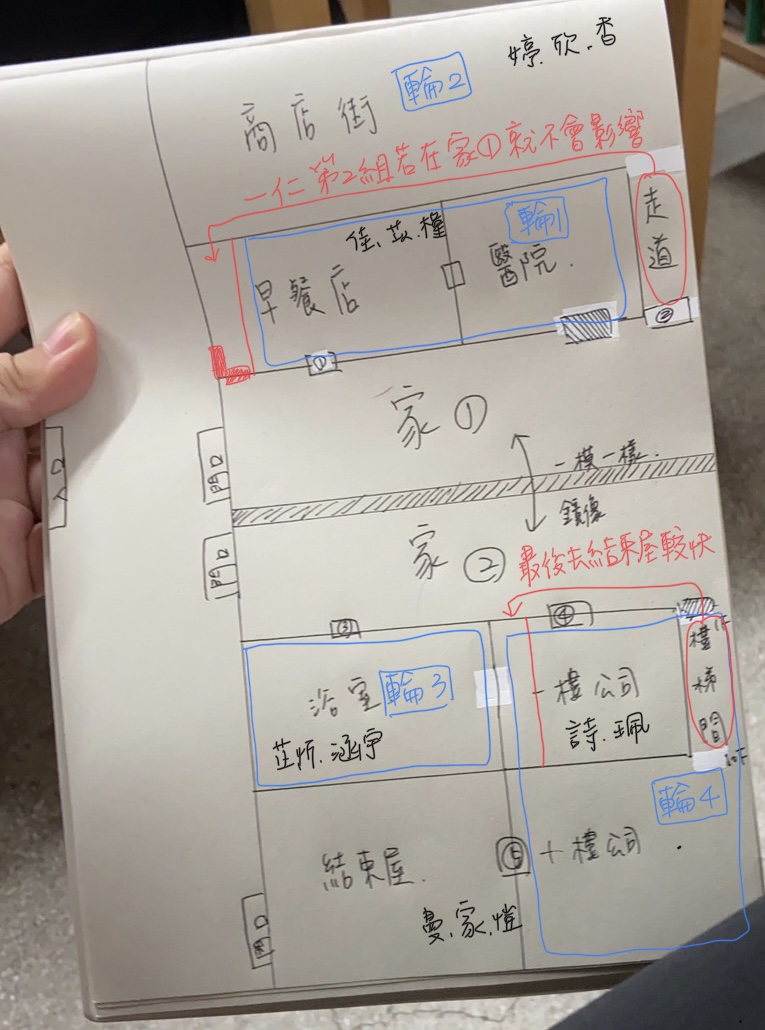 婷.欣.香
商店街 輪2
一仁第2組若在家①就不會影響
走道
佳、苡.橦
輪1
早餐店
醫院.
①
②
家①
出口
一模一樣.
鏡像
出口
家②
最後去結束屋較快
③
④
樓梯間
1F
浴室 輪3
一樓公司
芷忻.涵宇
詩.珮
10F
輪4
結束屋.
⑤
十樓公司.
曼.家.愷
出口
入口